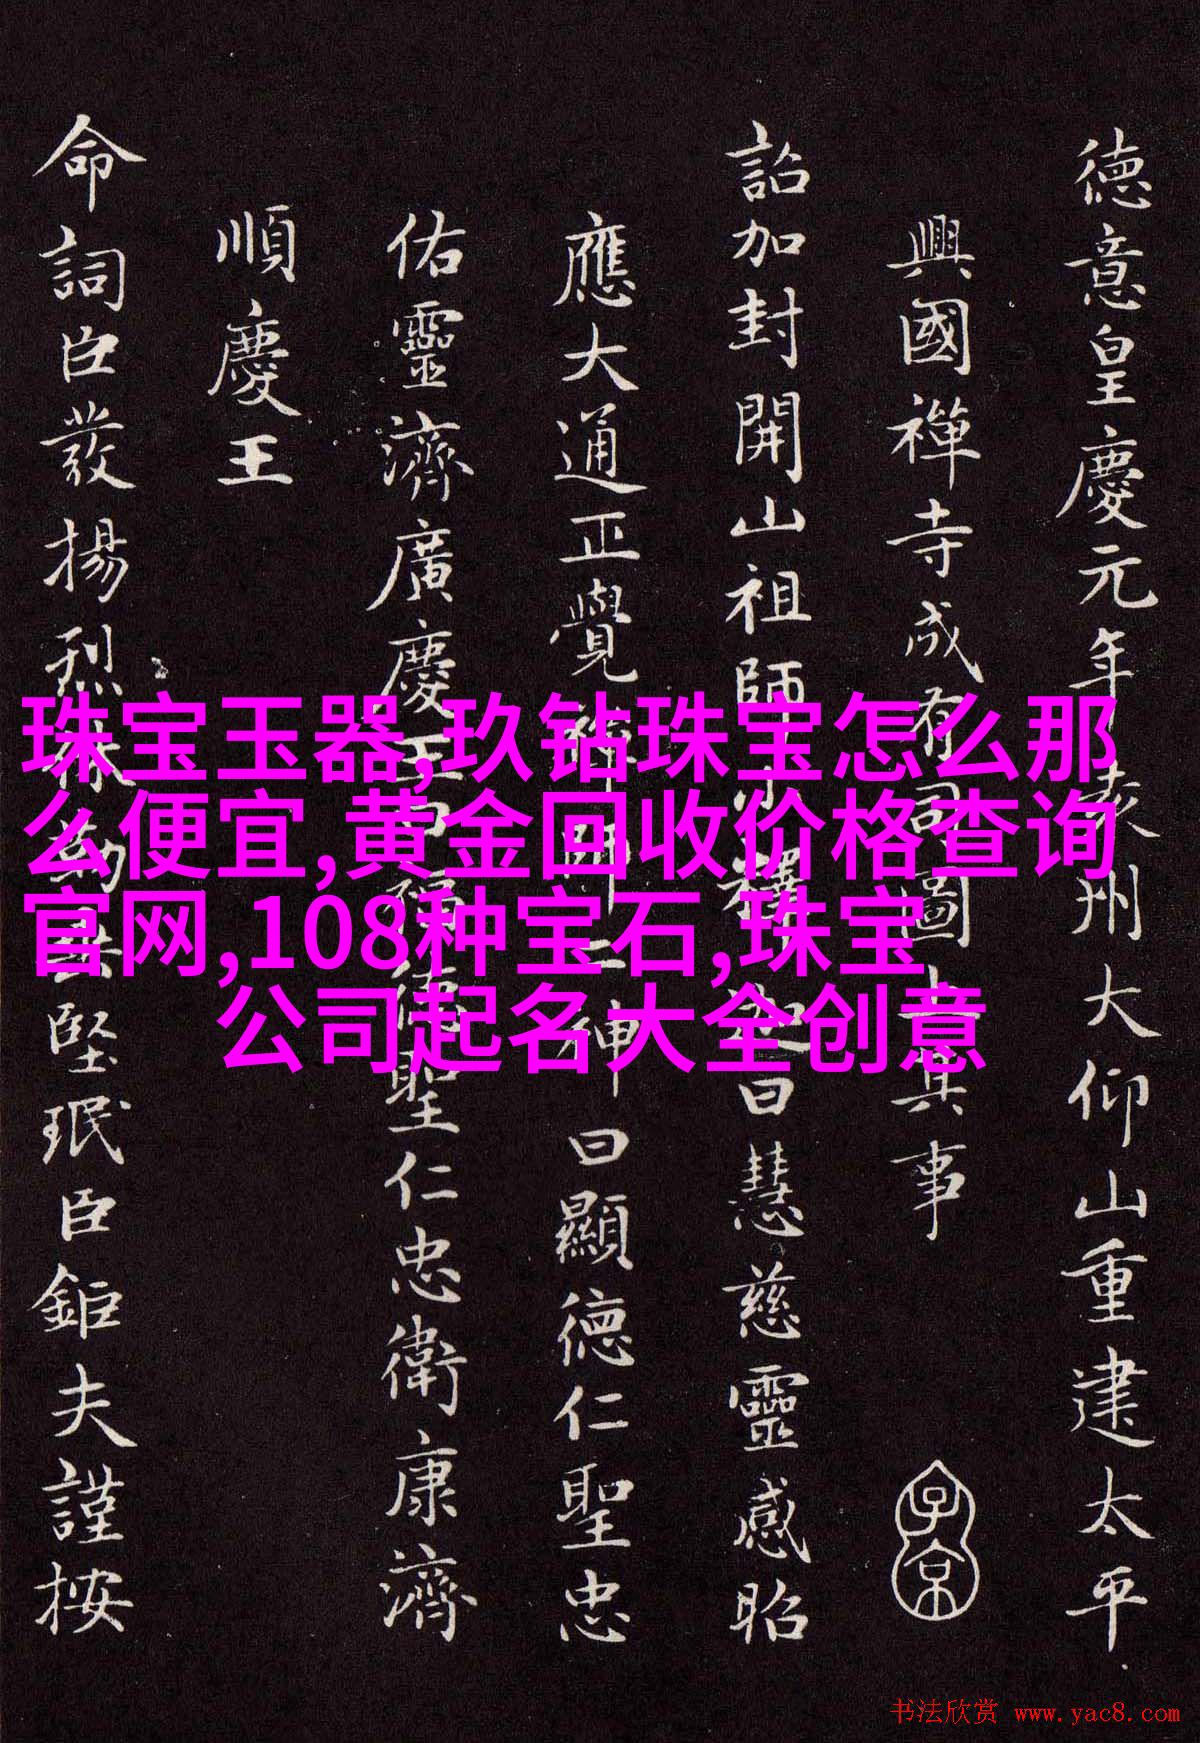 德意皇慶元年袁州大仰山重建太平
興國禪寺成有司圖上其事
詔加封開山祖師小釋迦曰慧慈靈感昭
應大通正覺禪師二神曰顯德仁聖忠
佑靈濟廣慶王曰福德聖仁忠衛康濟
順慶王
命詞臣發揚烈
堅珉臣鉅夫謹按
子京
珠宝玉器,玖钻珠宝怎么那
么便宜,黄金回收价格查询
官网,108种宝石,珠宝
公司起名大全创意
书法欣赏 www.yac8.com